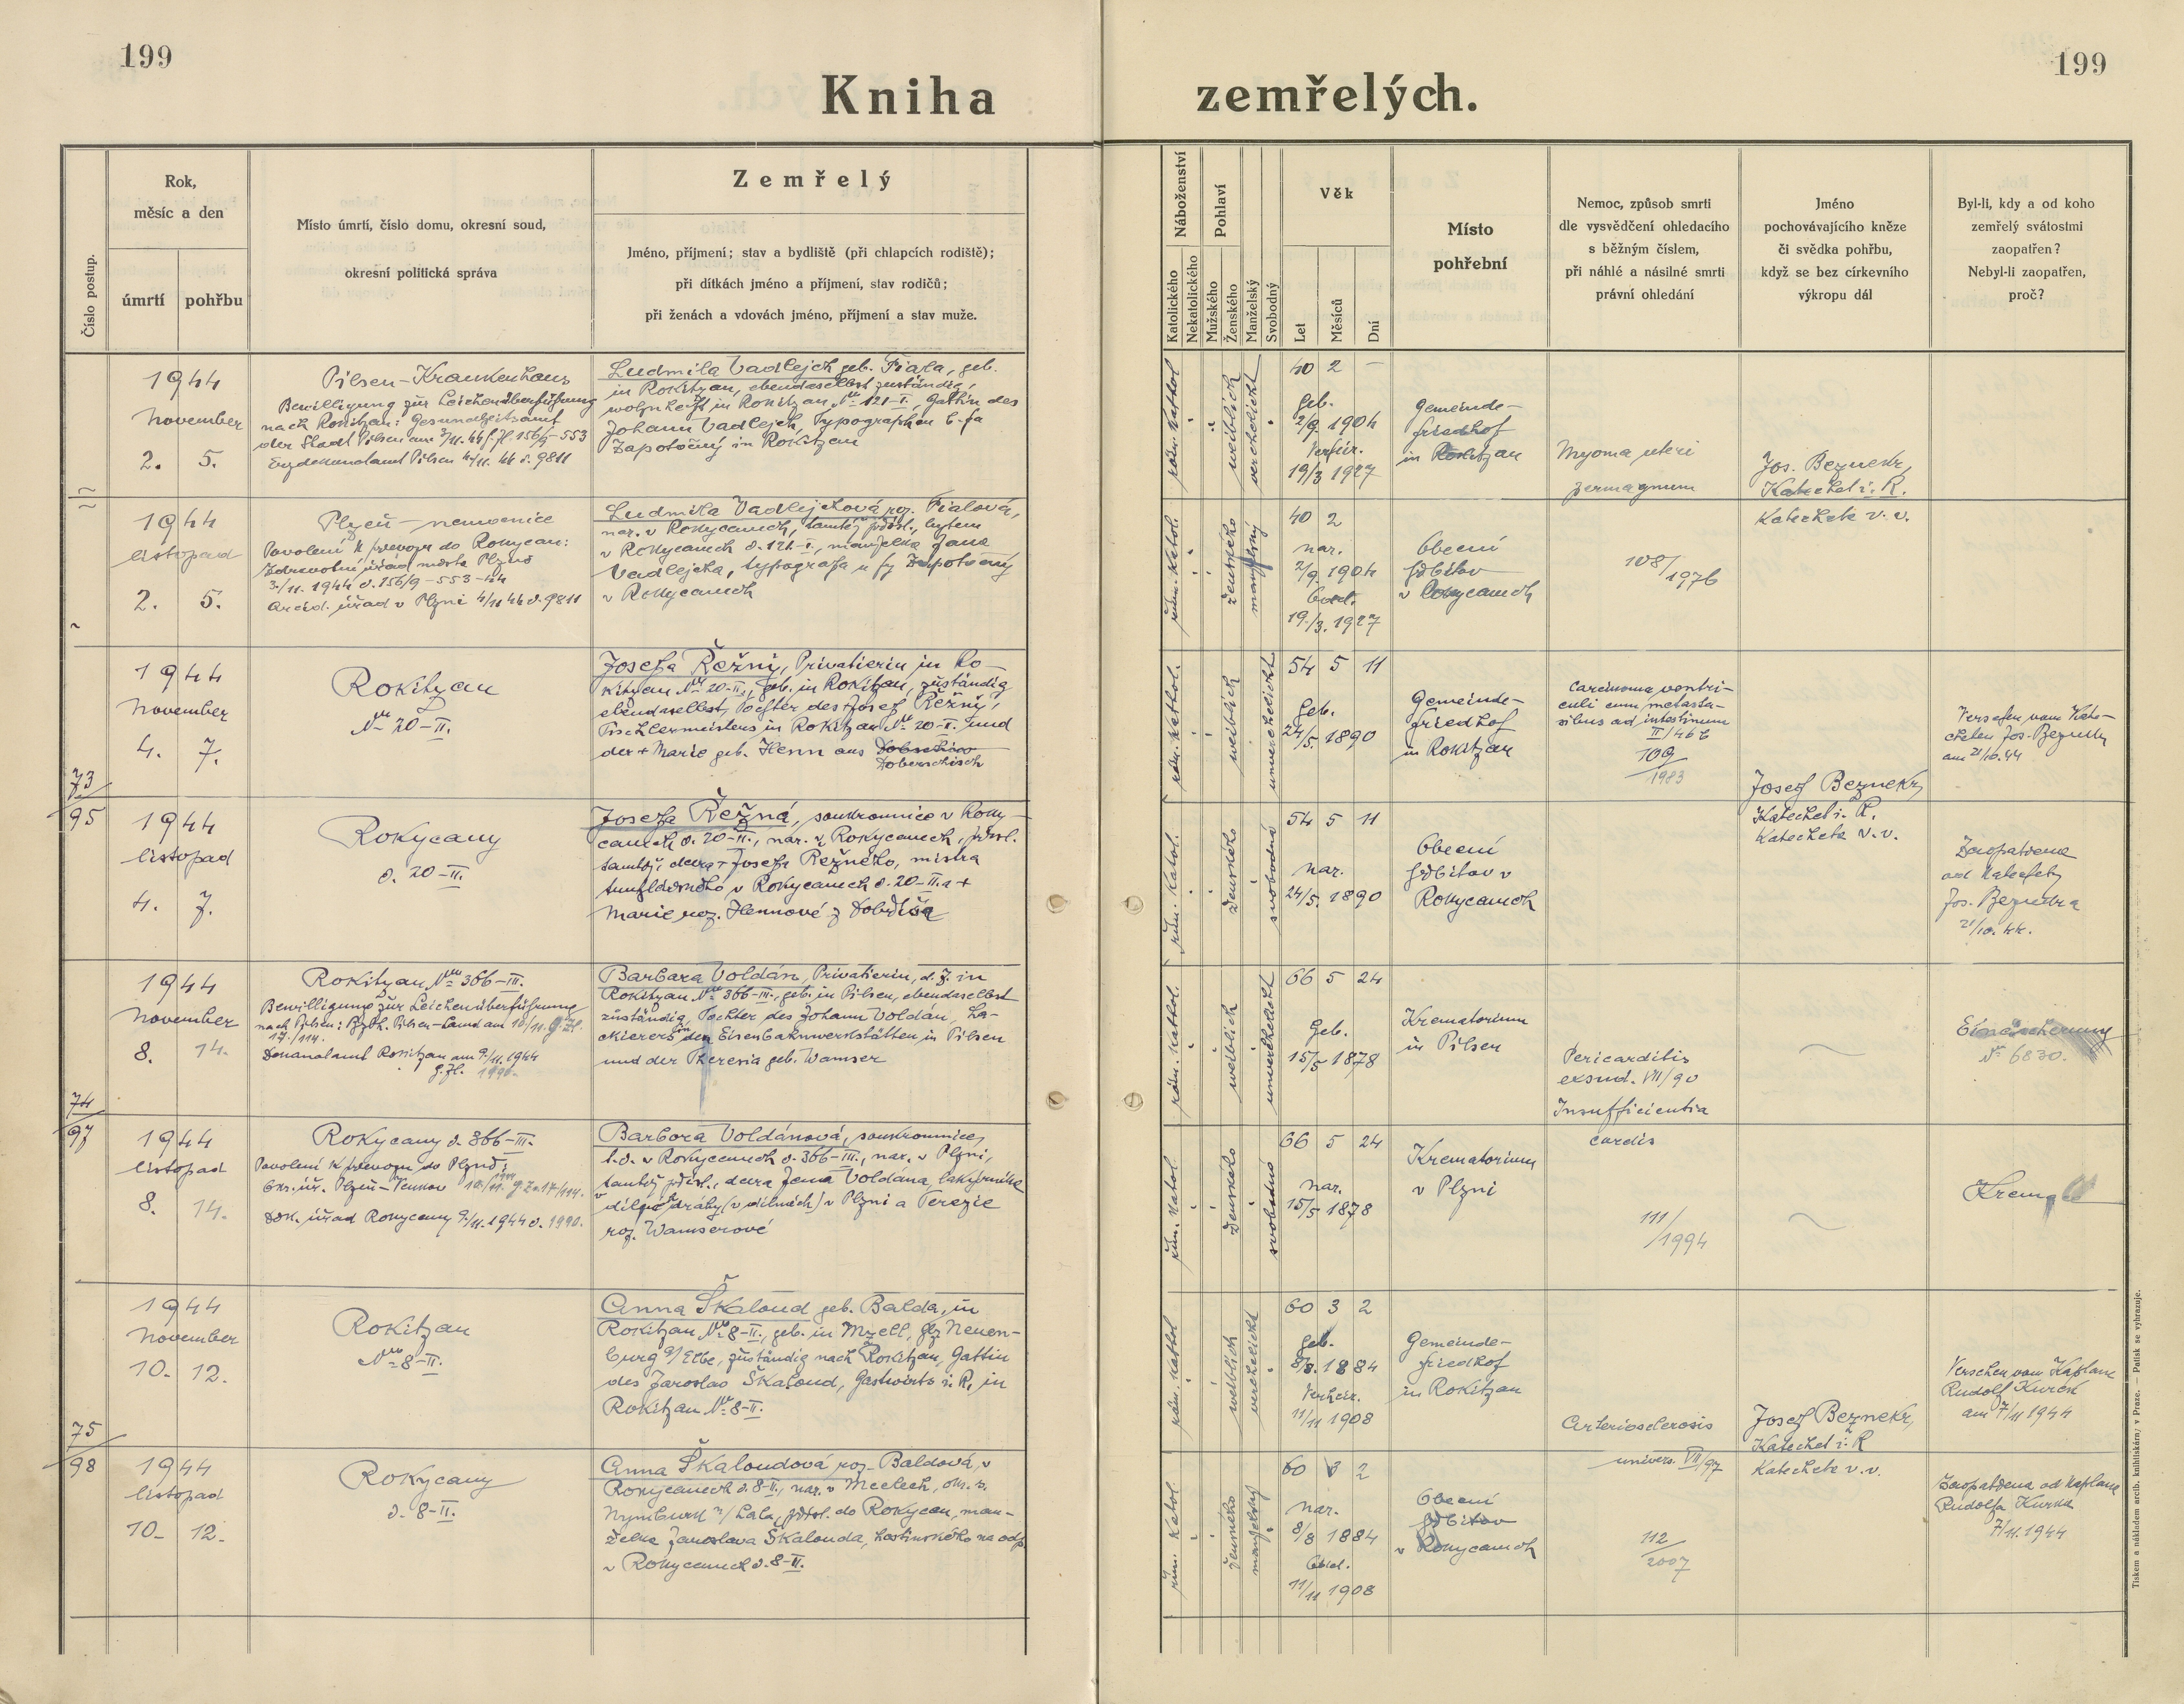 199
Kniha
zemřelých.
199
Číslo postup.
Rok,
měsíc a den
úmrtí
pohřbu
Místo úmrtí, číslo domu, okresní soud,
okresní politická správa
Zemřelý
Jméno, příjmení; stav a bydliště (při chlapcích rodiště);
při dítkách jméno a příjmení, stav rodičů;
při ženách a vdovách jméno, příjmení a stav muže.
Náboženství
Katolického
Nekatolického
Pohlaví
Mužského
Ženského
Manželský
Svobodný
Věk
Let
Měsíců
Dní
Místo
pohřební
Nemoc, způsob smrti
dle vysvědčení ohledacího
s běžným číslem,
při náhlé a násilné smrti
právní ohledání
Jméno
pochovávajícího kněze
či svědka pohřbu,
když se bez církevního
výkropu dál
Byl-li, kdy a od koho
zemřelý svátostmi
zaopatřen?
Nebyl-li zaopatřen,
proč?
1944
November
2. 5.
Pilsen-Krankenhaus
Bewilligung zur Leichenüberführung
nach Rokitzan: Gesundheitsamt
der Stadt Pilsen am 3/11. 44 156/9-553
Erzdekanalamt Pilsen 4/11. 44 č. 9811
Ludmila Vadlejch geb. Fiala, geb.
in Rokitzan, ebendaselbst zuständig,
wohnhaft in Rokitzan Nro 121-I., Gattin des
Johann Vadlejch, Typographen b. fa
Zapotočný in Rokitzan
röm. kathol.
weiblich
verehelicht
40 2 –
geb.
2/9. 1904
Verheir.
19/3 1927
Gemeinde-
friedhof
in Rokitzan
Myoma uteri
permagnum
Jos. Beznekr,
Katechet i. R.
1944
listopad
2. 5.
Plzeň – nemocnice
Povolení k převozu do Rokycan:
Zdravotní úřad města Plzně
3./11. 1944 č. 156/9-553-44
Arcid. úřad v Plzni 4/11 44 č. 9811
Ludmila Vadlejchová roz. Fialová,
nar. v Rokycanech, tamtéž přísl., bytem
v Rokycanech č. 121-I., manželka Jana
Vadlejcha, typografa u fy Zapotočný
v Rokycanech
řím. katol.
ženského
manželský
40 2
nar.
2/9. 1904
Odd.
19./3. 1927
Obecní
hřbitov
v Rokycanech
108/1976
Katecheta v. v.
1944
November
4. 7.
73
Rokitzan
Nro 20-II.
Josefa Řežný, Privatierin in Ro-
kitzan Nro 20-II., geb. in Rokitzan, zuständig
ebendaselbst, Tochter des † Josef Řežný,
Tischlermeisters in Rokitzan Nro 20-II. und
der † Marie geb. Henn aus Dobrschisch
Doberschisch
röm. kathol.
weiblich
unverehelicht
54 5 11
geb.
24/5. 1890
Gemeinde-
friedhof
in Rokitzan
Carcinoma ventri-
culi cum metasta-
sibus ad intestinum
II/46b
109
1983
Josef Beznekr,
Versehen vom Kate-
cheten Jos. Beznekr
am 21/10. 44
95
1944
listopad
4. 7.
Rokycany
č. 20-II.
Josefa Řežná, soukromnice v Roky-
canech č. 20-II., nar. v Rokycanech, přísl.
tamtéž, dcera † Josefa Řežného, mistra
truhlářského v Rokycanech č. 20-II. a †
Marie roz. Hennové z Dobříše
řím. katol.
ženského
svobodná
54 5 11
nar.
24/5. 1890
Obecní
hřbitov v
Rokycanech
Katechet i. R.
Katecheta v. v.
Zaopatřena
od katechety
Jos. Beznekra
21/10. 44.
1944
November
8. 14.
74
Rokitzan Nro 366-III.
Bewilligung zur Leichenüberführung
nach Pilsen: Bzhk. Pilsen-Land am 10/11. G. Zl.
17./114.
Dekanalamt Rokitzan am 9./11. 1944
G. Zl. 1990.
Barbara Voldán, Privatierin, d. Z. in
Rokitzan Nro 366-III., geb. in Pilsen, ebendaselbst
zuständig, Tochter des Johann Voldán, La-
ckierers in den Eisenbahnwerkstätten in Pilsen
und der Theresia geb. Wamser
röm. kathol.
weiblich
unverehelicht
66 5 24
Geb.
15/5 1878
Krematorium
in Pilsen
Pericarditis
exsud. VII/90
Insufficientia
Einäscherung
No 6830.
97
1944
listopad
8. 14.
Rokycany č. 366-III.
Povolení k převozu do Plzně:
Okr. úř. Plzeň-Venkov 10./11. 17/114.
Děk. úřad Rokycany 9./11. 1944 č. 1990.
Barbora Voldánová, soukromnice,
t. č. v Rokycanech č. 366-III., nar. v Plzni,
tamtéž přísl., dcera Jana Voldána, lakýrníka
dílně dráhy (v dílnách) v Plzni a Terezie
roz. Wamserové
řím. katol.
ženského
svobodná
66 5 24
nar.
15/5 1878
Krematorium
v Plzni
cordis
111/1994
1944
November
10. 12.
75
Rokitzan
Nro 8-II.
Anna Škaloud geb. Balda, in
Rokitzan Nro 8-II., geb. in Mzell, Bez Neuen-
burg a/Elbe, zuständig nach Rokitzan, Gattin
des Jaroslav Škaloud, Gastwirts i. R. in
Rokitzan Nro 8-II.
röm. kathol
weiblich
verehelicht
60 3 2
geb.
8/8. 1884
Verheir.
11/11 1908
Gemeinde-
friedhof
in Rokitzan
Arteriosclerosis
Josef Beznekr,
Katechet i. R
Versehen vom Kaplan
Rudolf Kurka
am 7/11 1944
98
1944
listopad
10. 12.
Rokycany
č. 8-II.
Anna Škaloudová roz. Baldová, v
Rokycanech č. 8-II., nar. v Mcelech, okr. s.
Nymburk n/Lab., přísl. do Rokycan, man-
želka Jaroslava Škalouda, hostinského na odp.
v Rokycanech č. 8-II.
řím. katol.
ženského
manželský
60 3 2
nar.
8/8 1884
Odd.
11/11 1908
Obecní
hřbitov
v Rokycanech
univers. VII/97
112
2007
Katecheta v. v.
Zaopatřena od kaplana
Rudolfa Kurka
7/11. 1944
Tiskem a nákladem arcib. knihtiskárny v Praze. — Patisk se vyhrazuje.